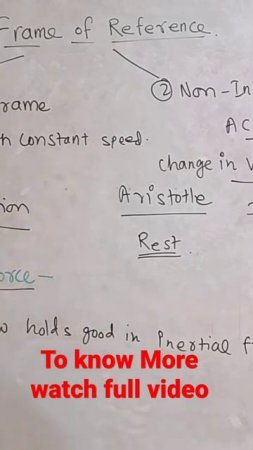 Frame of Reference.
② Non-In
rame
h constant speed.
AC
change in V
ion
Aristotle
Rest
orce -
w holds good in Inertial f
To know More
watch full video